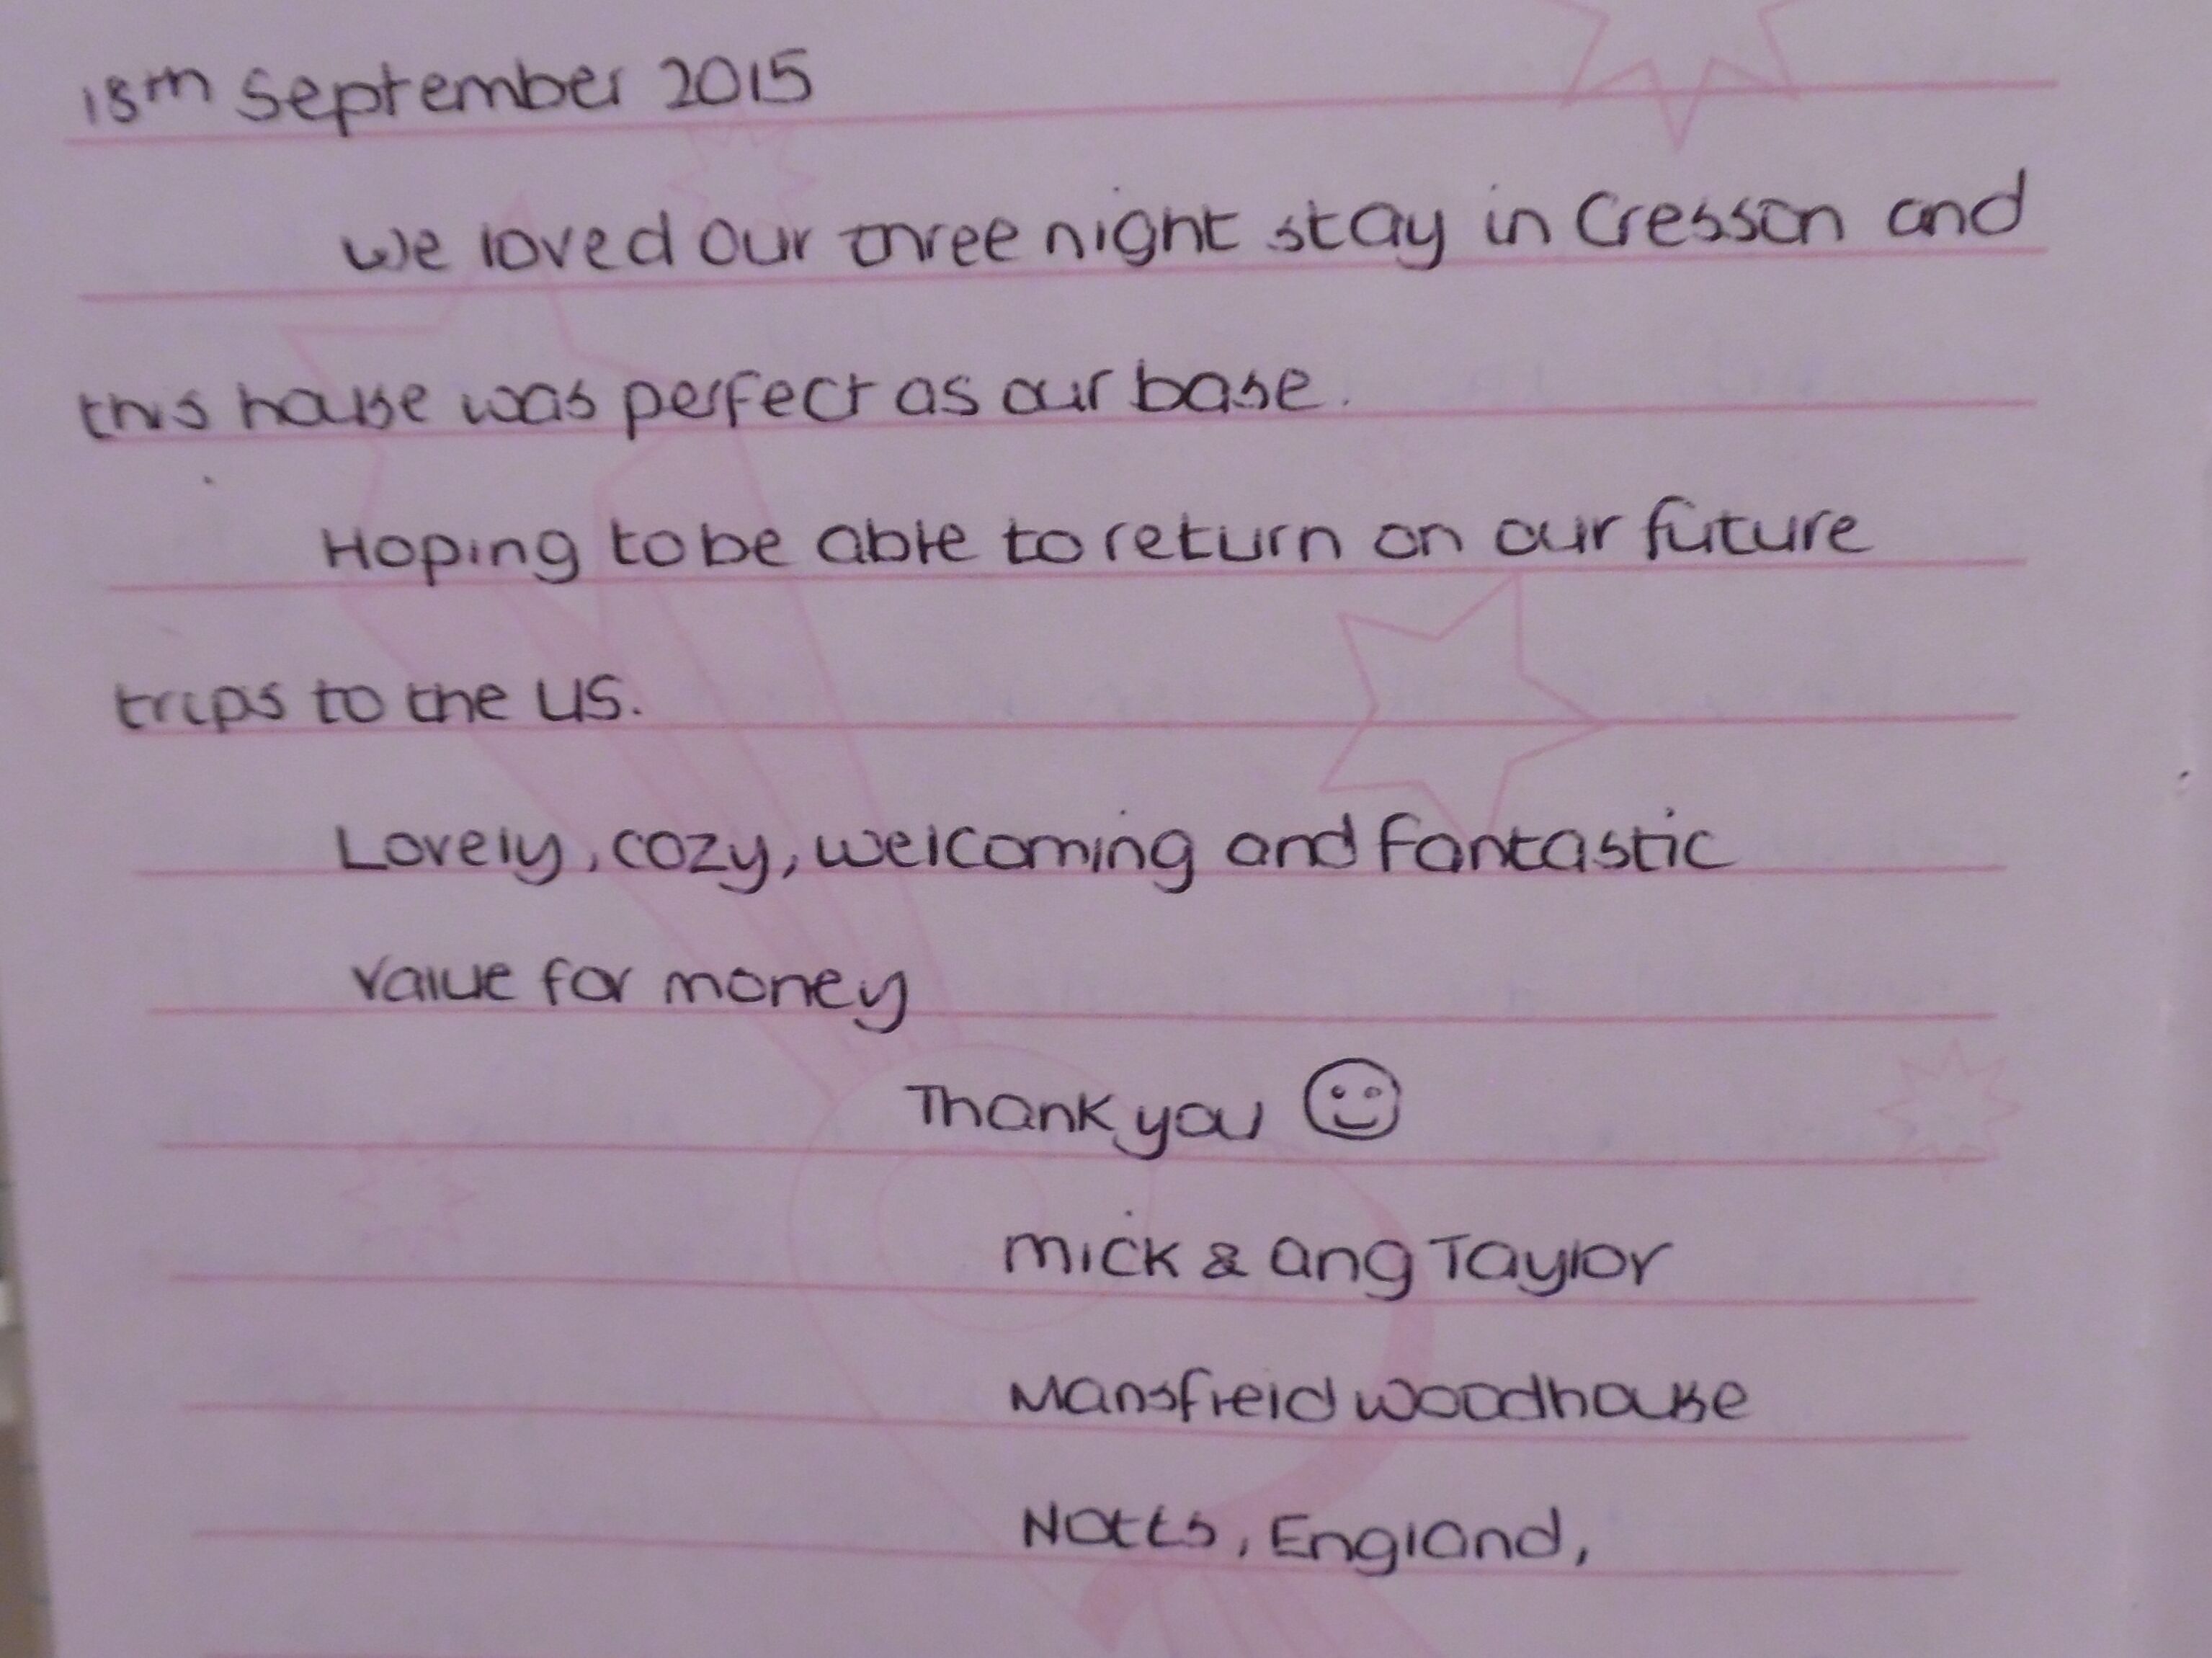 18th September 2015
We loved our three night stay in Cresson and
this house was perfect as our base.
Hoping to be able to return on our future
trips to the US.
Lovely, cozy, welcoming and fantastic
value for money
Thank you ☺
Mick & Ang Taylor
Mansfield Woodhouse
Notts, England,